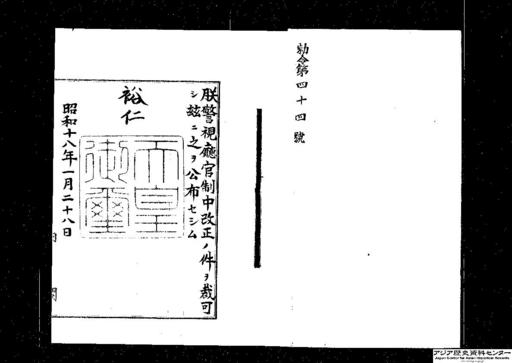 勅令第四十四號
朕警視廳官制中改正ノ件ヲ裁可
シ玆ニ之ヲ公布セシム
裕仁
天皇御璽
昭和十八年一月二十八日
アジア歴史資料センター
Japan Center for Asian Historical Records